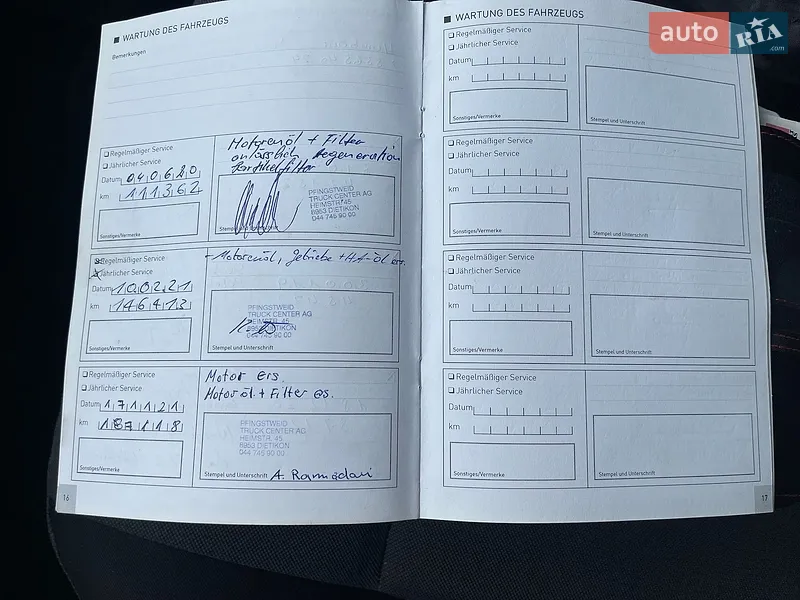 WARTUNG DES FAHRZEUGS
Bemerkungen
Regelmäßiger Service
Jährlicher Service
Datum 040620
km 111362
Sonstiges/Vermerke
Motorenöl + Filter
anlässlich Regeneration
Partikelfilter
PFINGSTWEID
TRUCK CENTER AG
HEIMSTR. 45
8953 DIETIKON
044 745 90 00
Stempel und Unterschrift
Regelmäßiger Service
Jährlicher Service
Datum 100221
km 146413
Sonstiges/Vermerke
- Motorenöl, Getriebe + HA-öl ers.
PFINGSTWEID
TRUCK CENTER AG
HEIMSTR. 45
8953 DIETIKON
044 745 90 00
Stempel und Unterschrift
Regelmäßiger Service
Jährlicher Service
Datum 171121
km 187118
Sonstiges/Vermerke
Motor ers.
Motoröl + Filter es.
PFINGSTWEID
TRUCK CENTER AG
HEIMSTR. 45
8953 DIETIKON
044 745 90 00
Stempel und Unterschrift A. Ramadani
16
WARTUNG DES FAHRZEUGS
Regelmäßiger Service
Jährlicher Service
Datum
km
Sonstiges/Vermerke
Stempel und Unterschrift
Regelmäßiger Service
Jährlicher Service
Datum
km
Sonstiges/Vermerke
Stempel und Unterschrift
Regelmäßiger Service
Jährlicher Service
Datum
km
Sonstiges/Vermerke
Stempel und Unterschrift
Regelmäßiger Service
Jährlicher Service
Datum
km
Sonstiges/Vermerke
Stempel und Unterschrift
17
auto RIA .com